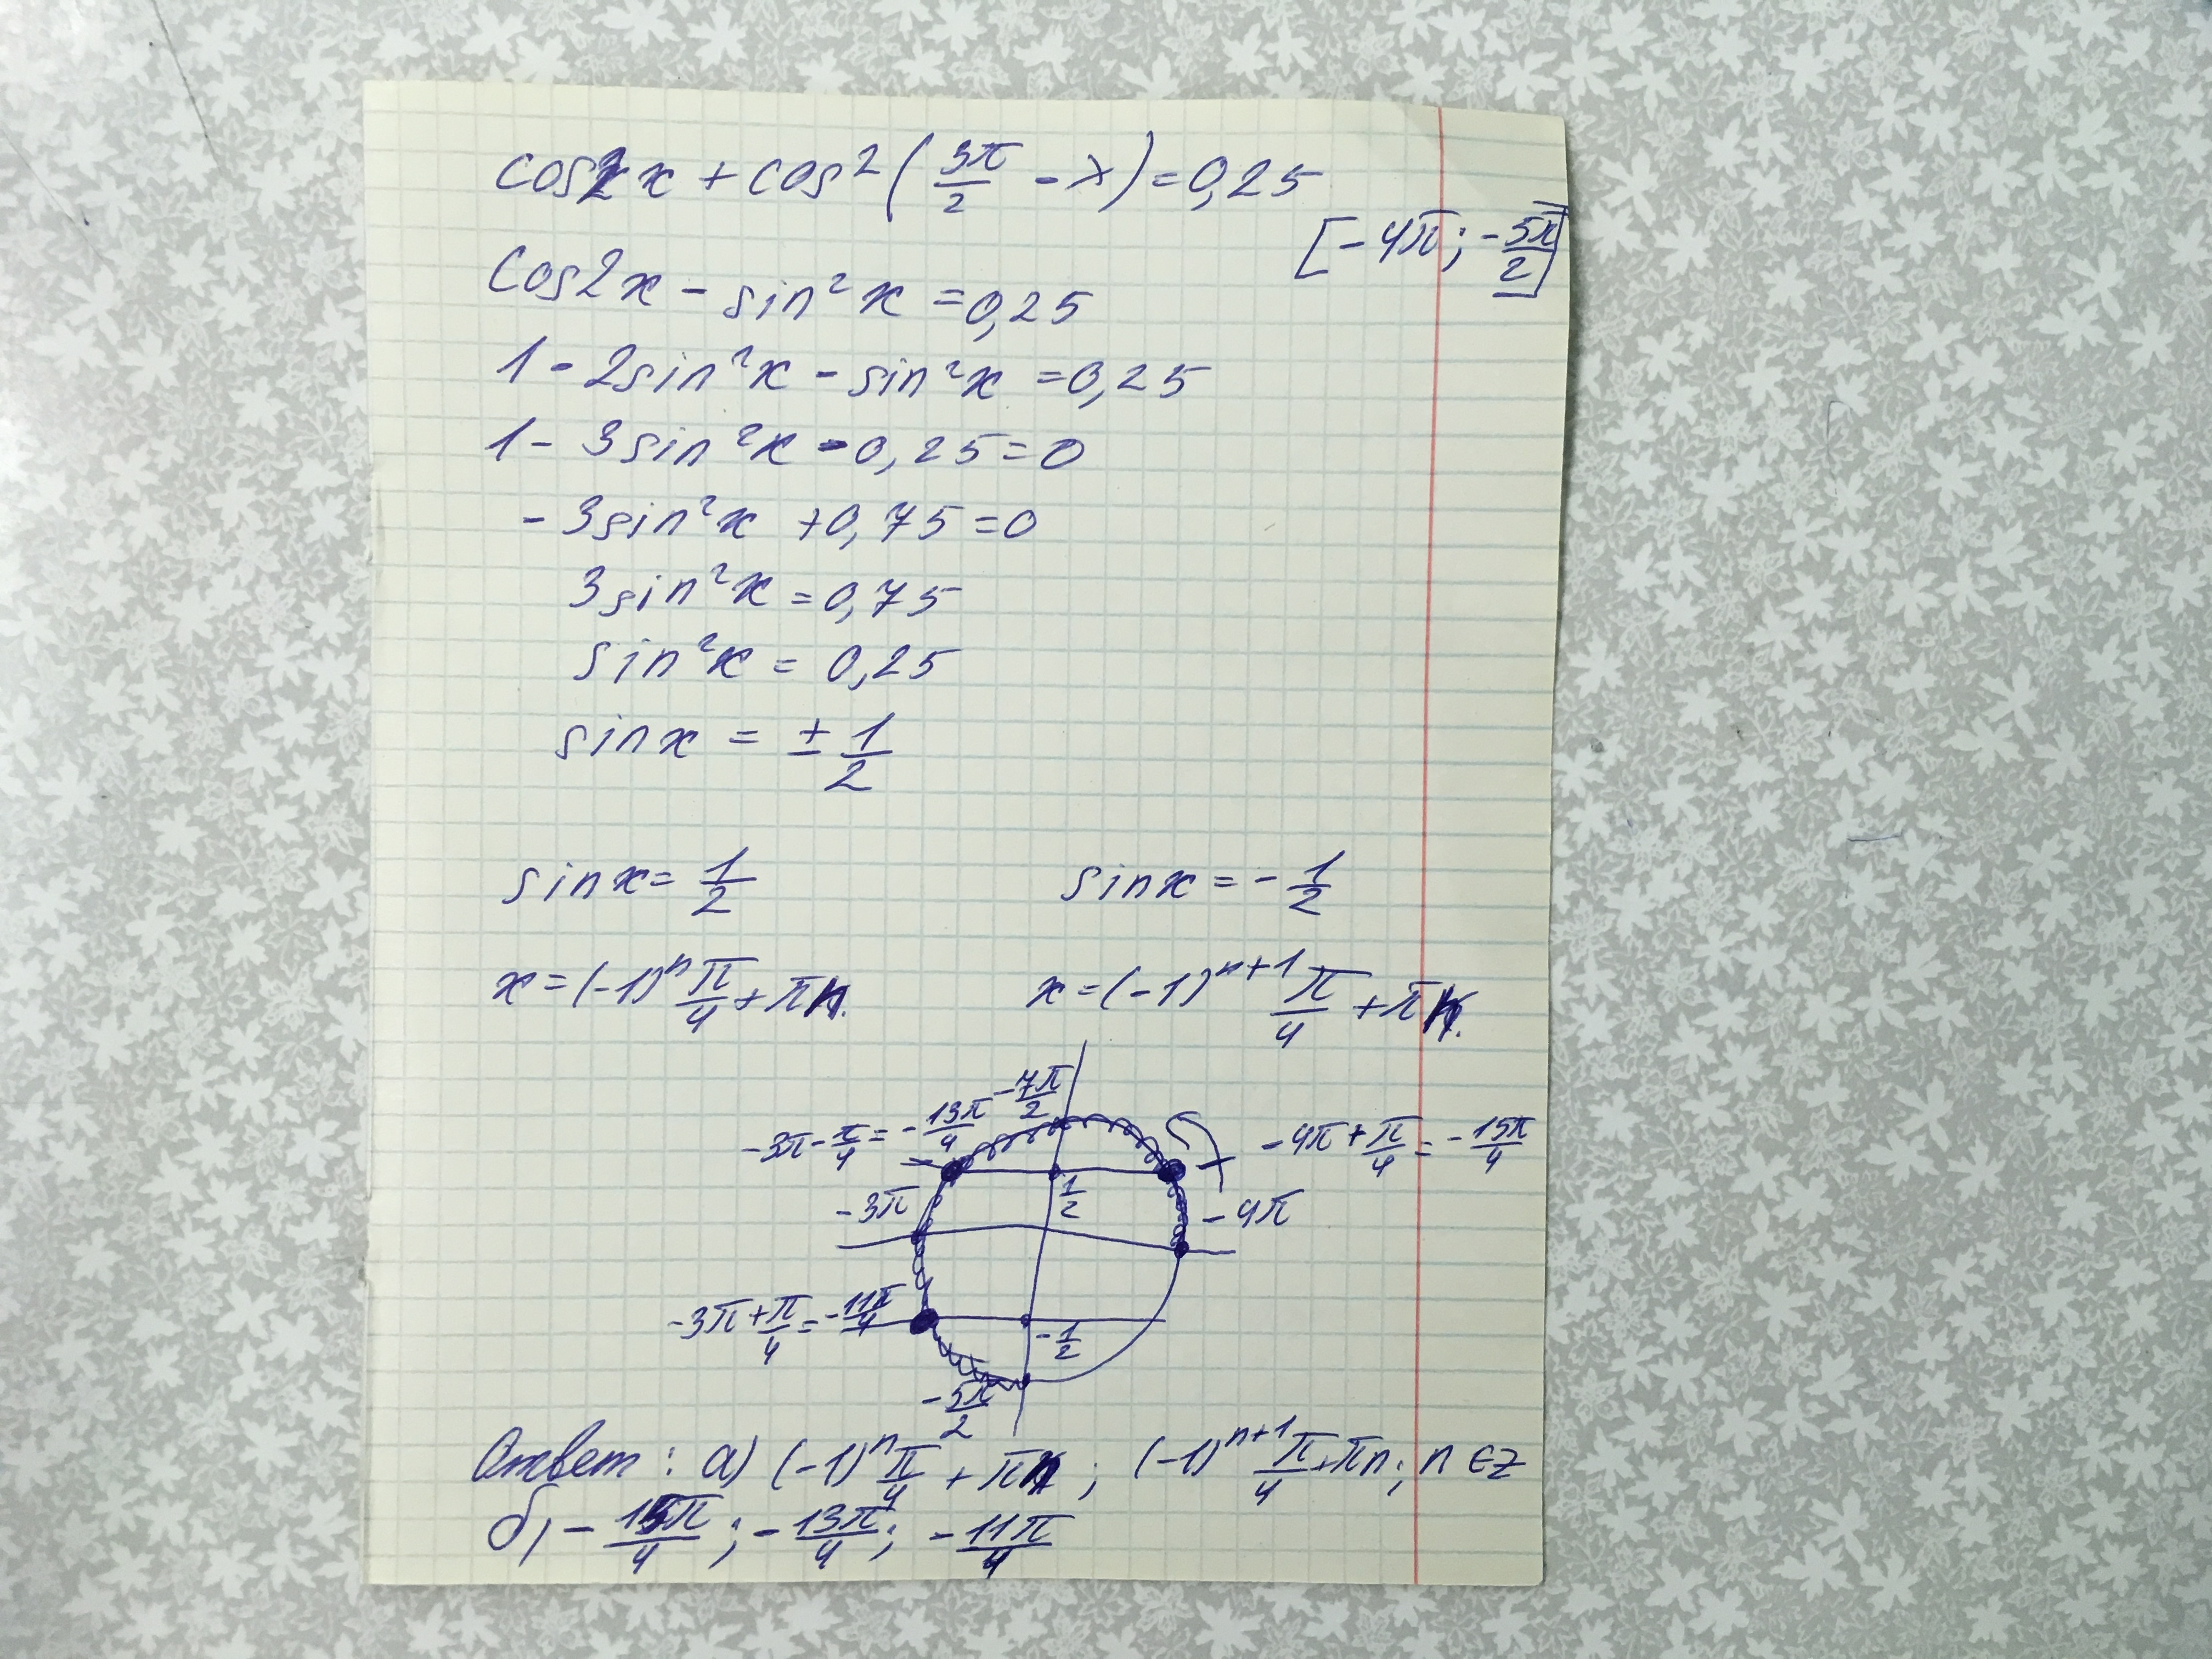 cos2x + cos²(3π/2 - x) = 0,25
[-4π; -5π/2]
cos2x - sin²x = 0,25
1 - 2sin²x - sin²x = 0,25
1 - 3sin²x - 0,25 = 0
- 3sin²x + 0,75 = 0
3sin²x = 0,75
sin²x = 0,25
sinx = ± 1/2
sinx = 1/2 sinx = - 1/2
x = (-1)ⁿ π/4 + πn. x = (-1)ⁿ⁺¹ π/4 + πn.
-7π/2
-3π - π/4 = -13π/4 -4π + π/4 = -15π/4
1/2
-3π -4π
-3π + π/4 = -11π/4
-1/2
-5π/2
Ответ: а) (-1)ⁿ π/4 + πn; (-1)ⁿ⁺¹ π/4 + πn; n ∈ z
б) - 15π/4; - 13π/4; - 11π/4